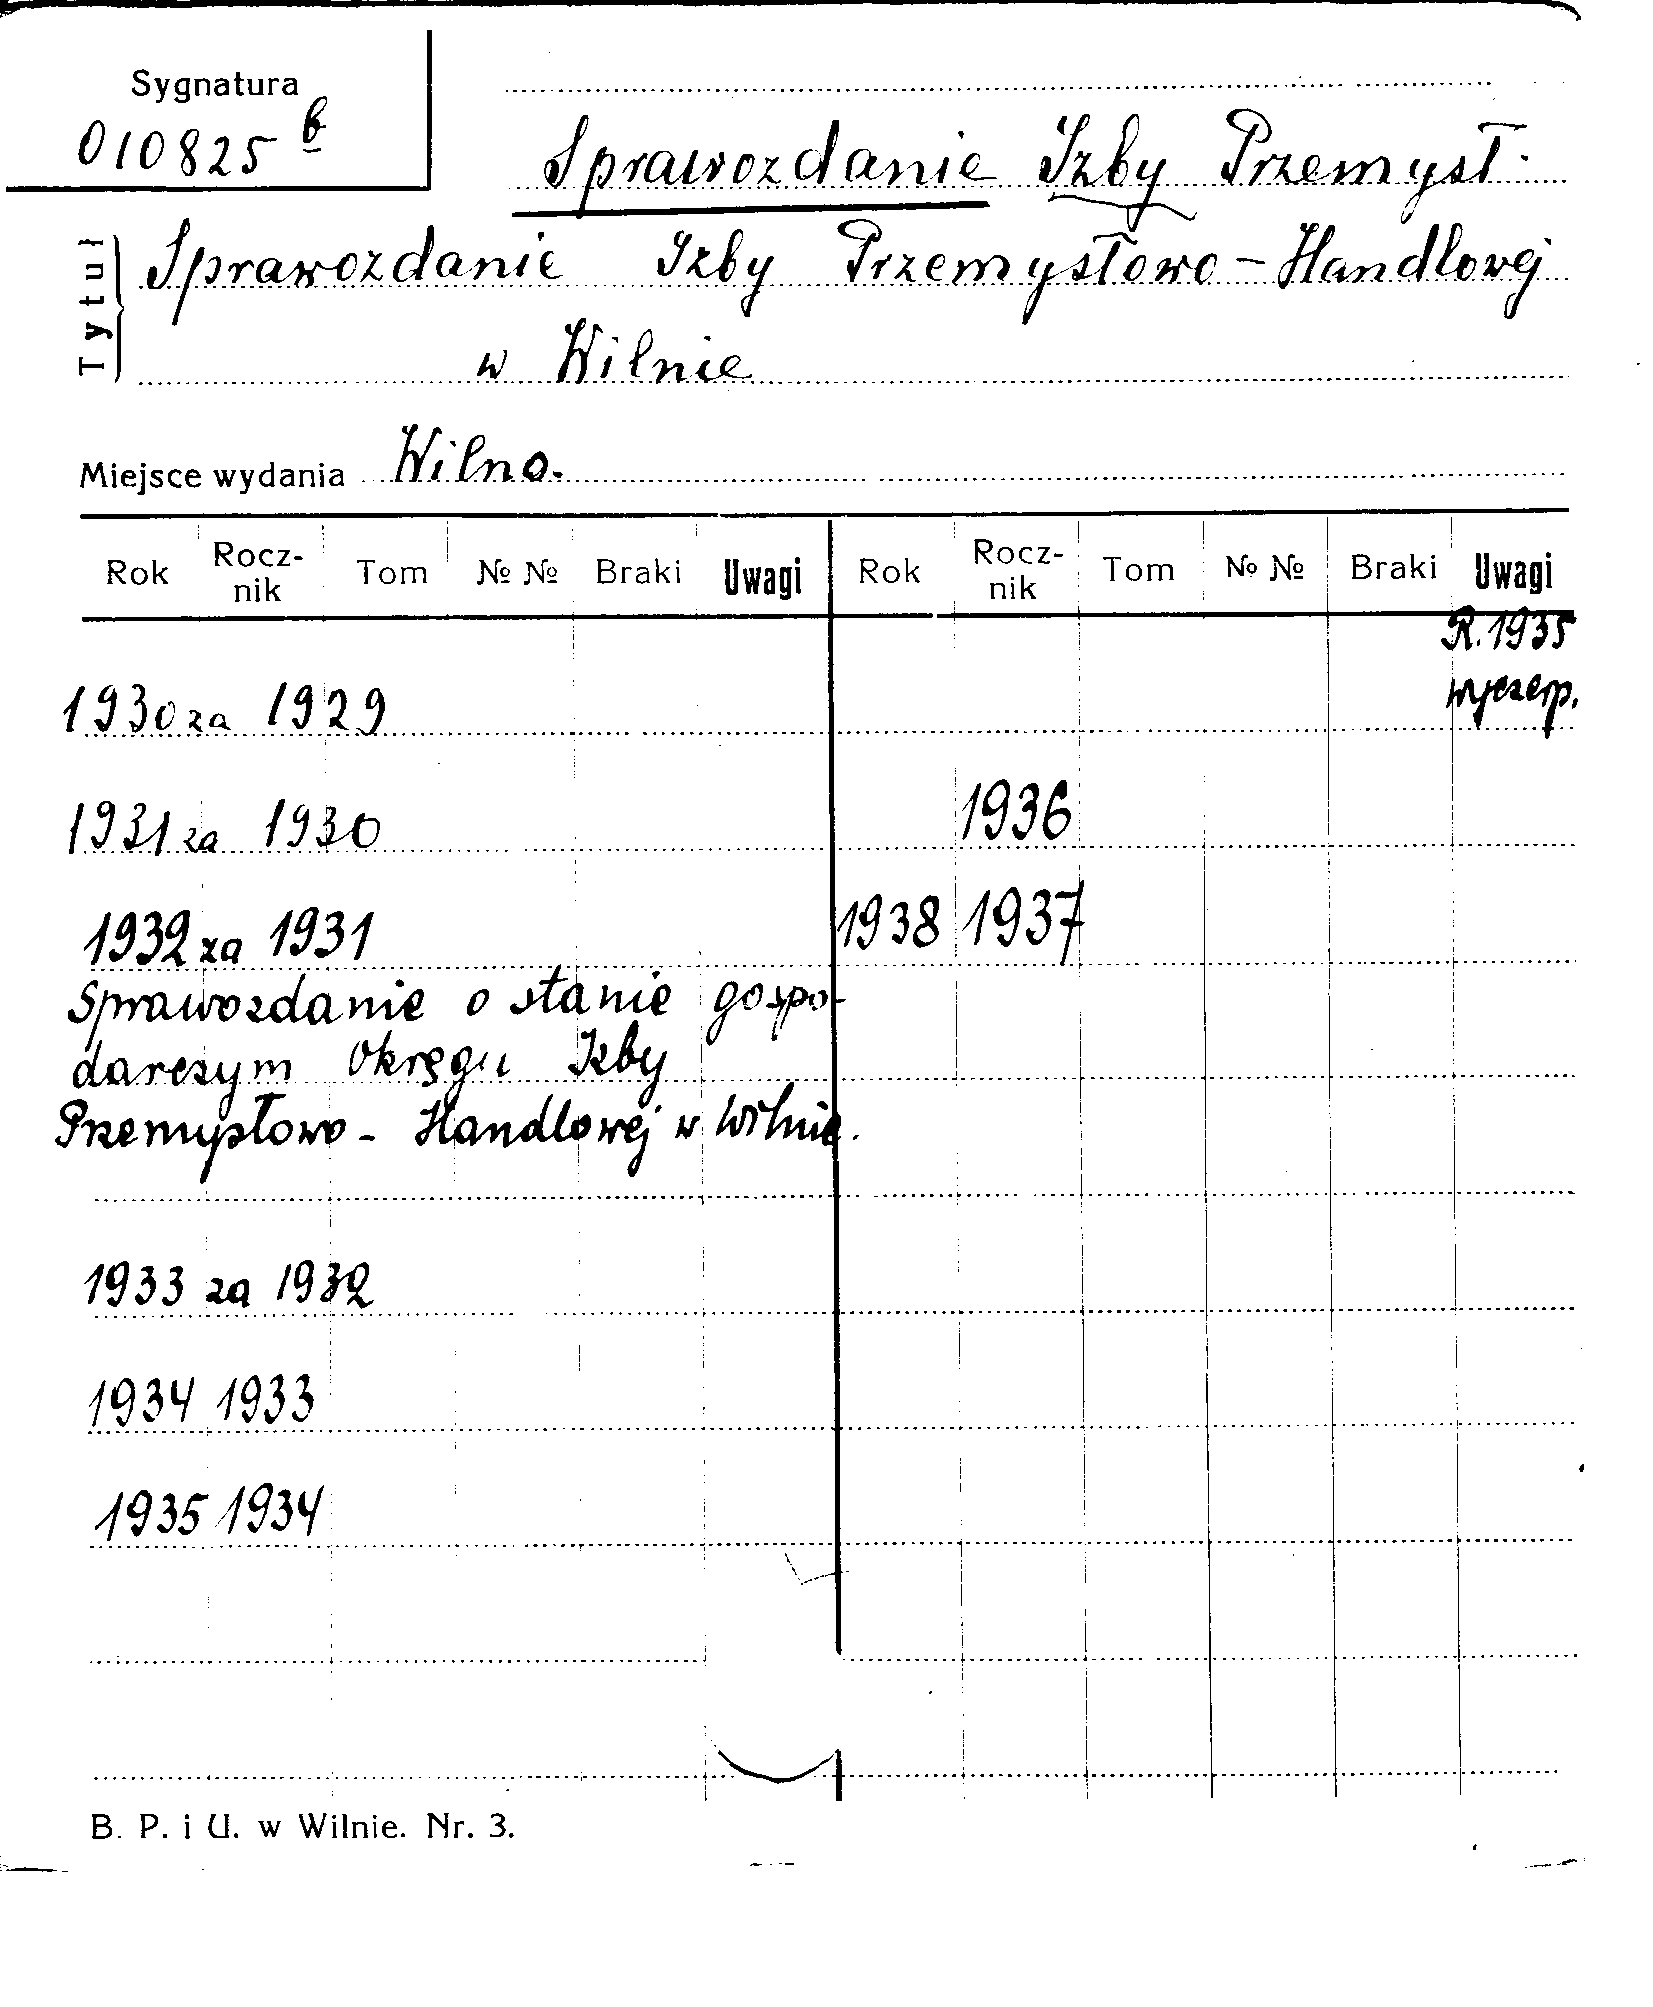 Sygnatura
010825 b
Sprawozdanie Izby Przemysł.
Tytuł
Sprawozdanie Izby Przemysłowo-Handlowej
w Wilnie
Miejsce wydania Wilno.
Rok Rocz-nik Tom № № Braki Uwagi Rok Rocz-nik Tom № № Braki Uwagi
R. 1935
wyczerp.
1930 za 1929
1931 za 1930
1936
1932 za 1931
1938 1937
Sprawozdanie o stanie gospo-
darczym Okręgu Izby
Przemysłowo-Handlowej w Wilnie.
1933 za 1932
1934 1933
1935 1934
B. P. i U. w Wilnie. Nr. 3.